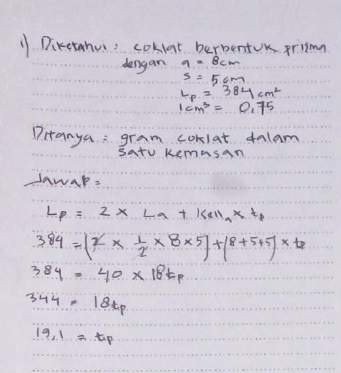 1) Diketahui : coklat berbentuk prisma
dengan a = 8cm
s = 5cm
Lp = 384 cm²
1cm³ = 0,75
Ditanya : gram coklat dalam
satu kemasan
Jawab =
Lp = 2 × La + Kell a × tp
384 = (2 × 1/2 × 8 × 5) + (8+5+5) × tp
384 = 40 × 18tp
344 = 18tp
19,1 = tp